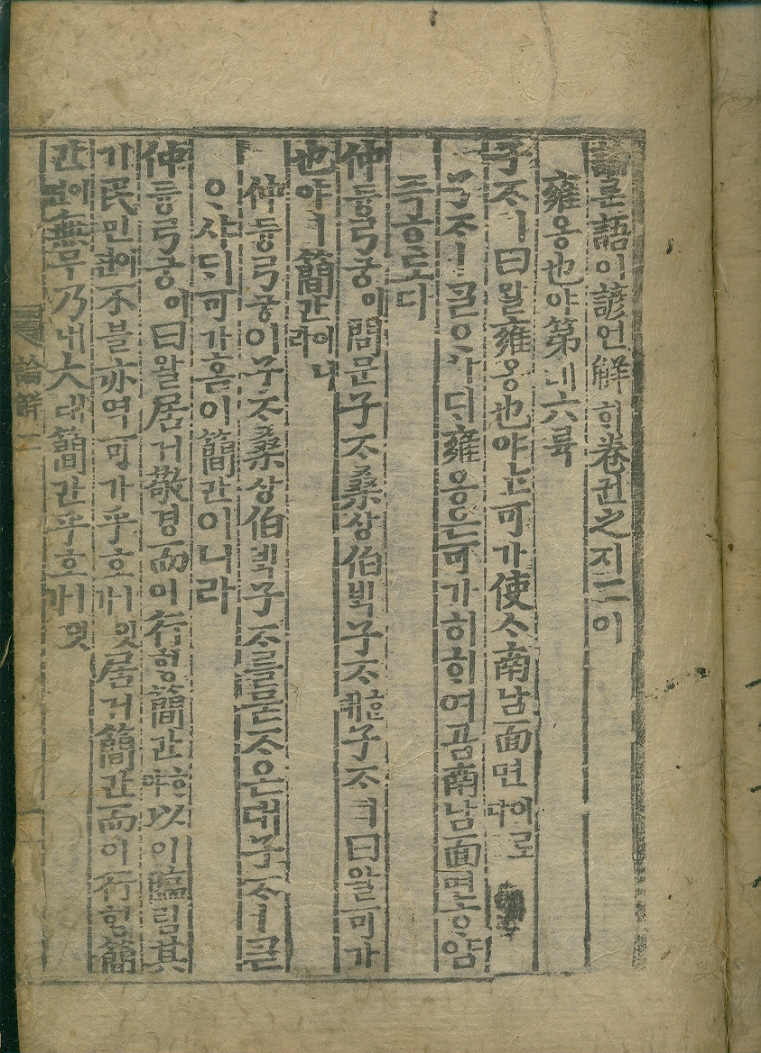 論론語어諺언解ᄒᆡ卷권之지二이
雍옹也야第뎨六륙
子ᄌᆞㅣ曰왈雍옹也야ᄂᆞᆫ可가使ᄉᆞ南남面면이로다
子ᄌᆞㅣᄀᆞᆯᄋᆞ샤ᄃᆡ雍옹은可가히ᄒᆞ여곰南남面면ᄒᆞ얌
즉ᄒᆞ도다
仲듕弓궁이問문子ᄌᆞ桑상伯ᄇᆡᆨ子ᄌᆞᄒᆞᆫ대子ᄌᆞㅣ曰왈可가
也야ㅣ簡간이니라
仲듕弓궁이子ᄌᆞ桑상伯ᄇᆡᆨ子ᄌᆞ를묻ᄌᆞ온대子ᄌᆞㅣᄀᆞᆯ
ᄋᆞ샤ᄃᆡ可가홈이簡간이니라
仲듕弓궁이曰왈居거敬경而이行ᄒᆡᆼ簡간ᄒᆞ야以이臨림其
기民민이면不블亦역可가乎호ㅣ잇가居거簡간而이行ᄒᆡᆼ簡
간이면無무乃내大대簡간乎호ㅣ잇
論解二